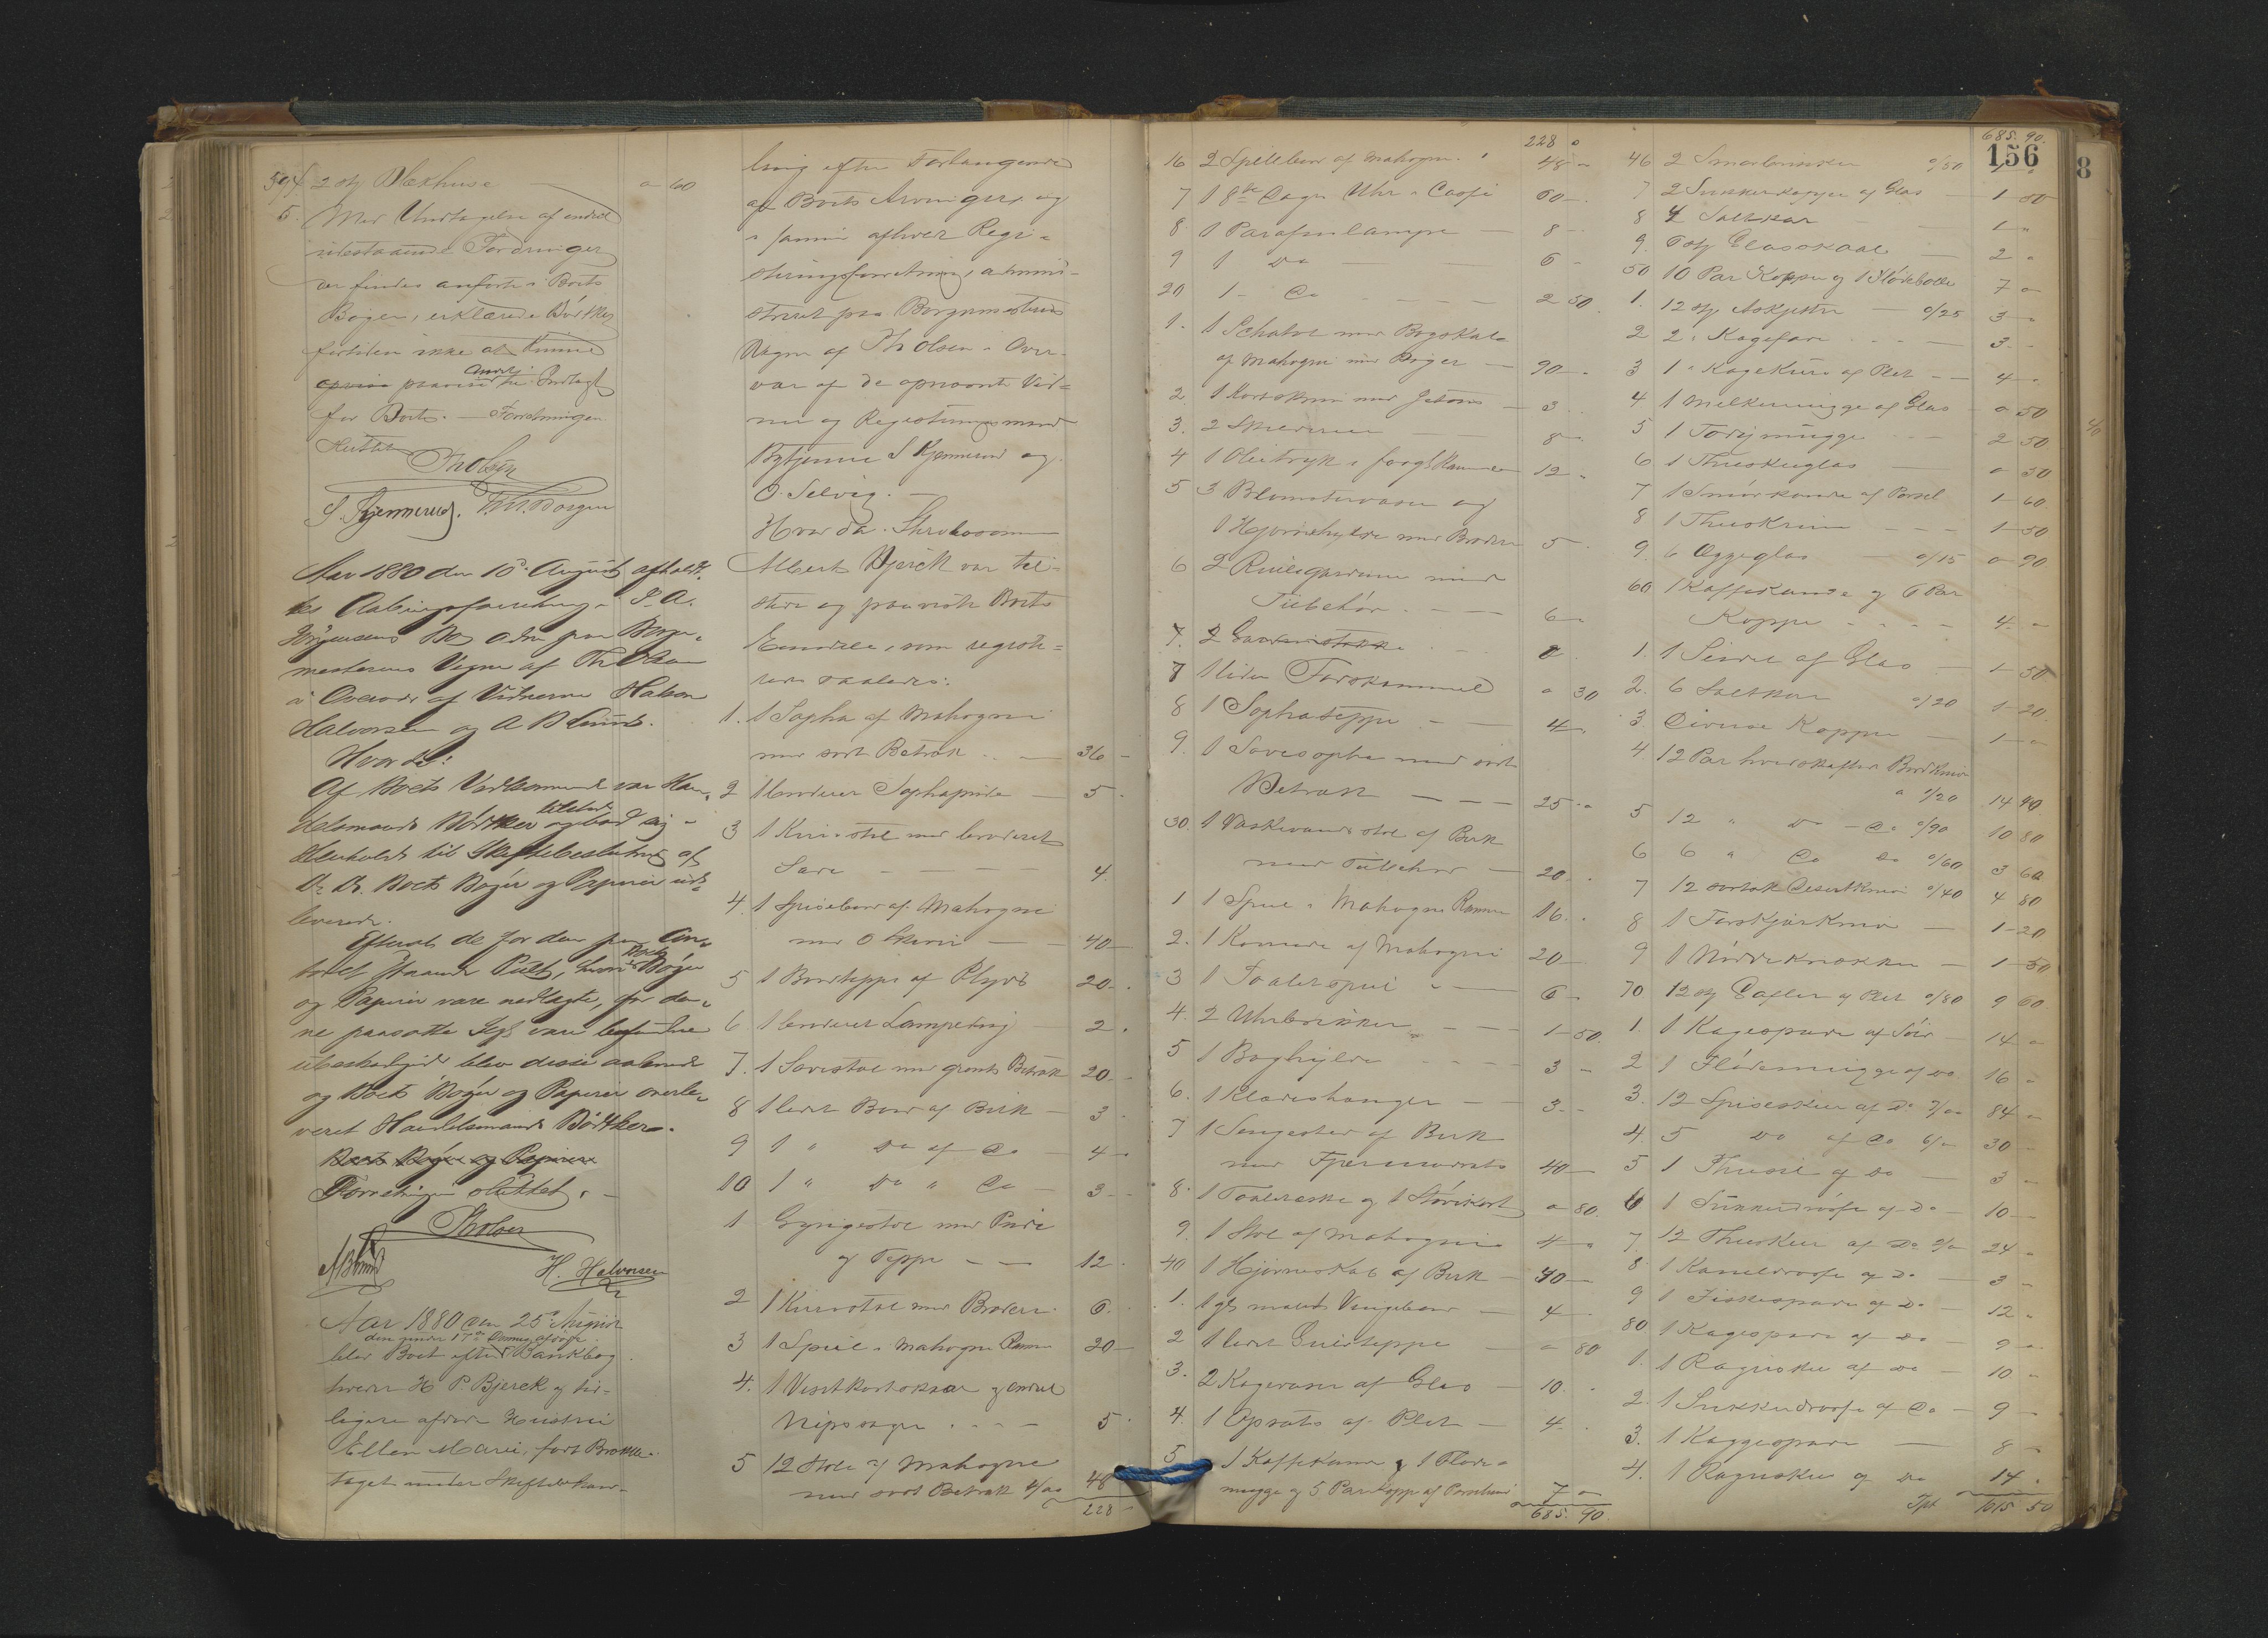 594 2 stk Blækhuse " 60
5. Med Undtagelse af endel
udestaaende Fordringer
der findes anførte i Boets
Bøger, erklærede Bødtker
fortiden ikke at kunne
opvise paavise Andet til Indtægt
for Boet. — Forretningen
sluttet
Th Olsen
S. Kjennerud. Th. Borgen
Aar 1880 den 10d August afholdt-
tes Aabningsforretning i P. A.
Jørgensens Bo paa Borge-
mesterens Vegne af Th Olsen
i Overvær af Vidnerne
Halvorsen og A B Lund.
Hvorda:
Af Boets Vedkommende var Han-
delsmand Bødtker tilstede og bad sig i
Henhold til Skiftebeslutning af
D. D. Boets Bøger og Papirer ud-
leverede.
Efterat de for den
Pult, hvori Boets Bøger
og Papirer vare nedlagte, for den-
ne paasatte Segl vare befundne
ubeskadiget blev disse aabnede
og Boets Bøger og Papirer overle-
veret Handelsmand Bødtker.
Boets Bøger og Papirer
Forretningen sluttet. —
Th Olsen
A B Lund H. Halvorsen
Aar 1880 den 25d August
blev Boet efter den under 17de afdøde Bankbog
holder H P. Bjerck og tid-
ligere afdøde Hustru
Ellen Marie, født
taget under Skiftebehand-
ling efter Forlangende
af Boets Arvinger, og
i samme afholdt Regi-
streringsforretning, admini-
streret paa Borgemesterens
Vegne af Th Olsen i Over-
vær af de opnævnte Vid-
ner og Registreringsmænd
Bytjener S Kjennerud og
O. Selvig. —
Hvorda: Skibs
Albert Bjerck var til-
stede og paaviste Boets
Eiendele, som registre-
redes saaledes:
1. 1 Sopha af Mahogni
med sort Betræk — 36 -
2 1 broderet Sophapude — 5 -
3 1 Kurvstol med broderet
Sæde — 4
4. 1 Spisebord af Mahogni
med — 40 -
5 1 Bordteppe af Plyds 20 -
6 1 broderet Lampebrik 2 -
7. 1 Lænestol med grønt Betræk 20 -
8 1 lidet Bord af Birk — 3 -
9 1 " Do af Do 4 -
10 1 " Do " Do 3 -
1 Gyngestol med Pude
og Teppe — 12 -
2 1 Kurvstol med Broderi 6 -
3 1 Speil i Mahogni Ramme 20 -
4. 1 Visitkortskaal og endel
Nipssager — 5 -
5 12 Stole af Mahogni
med sort Betræk 4/00 48
228 -
228 "
16 2 Spillebord af Mahogni 48 -
7 1 8te Dags Uhr i Casse 60 -
8 1 Parafinlampe — 8 -
9 1 Do — 6 -
20 1 - Do — 2 50
1. 1 Schatol med Bogskab
af Mahogni med Bøger — 90 -
2. 1 Kortskrin med Jetons — 3 -
3. 2 Skilderier — 8 -
4 1 Olietryk i forg. Ramme 12 -
5 3 Blomstervaser og
1 Hjørnehylde med Broderi 5 -
6 2 Rullegardiner med
Tilbehør — 6 -
7. 2
7 1 liden Fodskammel " 30
8 1 Sophateppe — 4 -
9. 1 Sovesopha med sort
Betræk — 25 "
30. 1 Vaskevandsstol af Birk
med Tilbehør — 20 -
1 1 Speil i Mahogni Ramme 16 -
2. 1 Komode af Mahogni 20 -
3 1 Toiletspeil — 6 -
4. 2 Uhrbrikker — 1 - 50
5 1 Boghylde — 3 -
6. 1 Klædeshænger — 3 -
7 1 Sengested af Birk
med Fjermadrats 40 -
8. 1 Toiletæske og 1 " 80
9. 1 Stol af Mahogni 4 "
40 1 Hjørneskab af Birk — 40 -
1. 1 gl. malet Vingebord — 4 -
2 1 lidet Gulvteppe — " 80
3. 2 Kagevaser af Glas — 10 -
4. 1 Opsats af Plet — 4 -
5 1 Kaffekande, 1 Fløde-
mugge og 5 Par Kopper af Porcelain 7 "
685. 90
685. 90
156
8
46 2 Smørbrikker "/50 1 "
7 2 Sukkerkopper af Glas — 1 - 50
8 4 Saltkar — 1 "
9. 6 stk Glasskaale — 2 "
50 10 Par Kopper og 1 Flødebolle 7 "
1. 12 stk Askjetter — "/25 3 "
2 2 " Kagefade — 3 -
3 1 " Kagekurv af Plet — 4 "
4 1 Melkemugge af Glas — " 50
5 1 Todymugge — 2 50
6. 1 Theskeglas — " 50
7 1 Smørkande af Porsel 1 - 60
8 1 Theskrin — 1 - 50
9. 6 Æggeglas — "/15 " 90
60. 1 Kaffekande og 6 Par
Kopper — 4 -
1. 1 Seidel af Glas — 1 - 50
2. 6 Saltkar "/20 1 - 20
3. Diverse Kopper — 1 - "
4. 12 Par hvidskaftede Bordknive
a 1/20 14 40
5 12 " Do - Do "/90 10 80
6 6 " Do Do "/60 3 60
7 12 sortsk. Desertknive "/40 4 80
8 1 Forskjærkniv — 1 - 20
9 1 Nøddeknækker — 1 - 50
70 12 stk Gafler af Plet "/80 9 60
1. 1 Kagespade af Sølv 14 "
2 1 Flødemugge af do 16 "
3. 12 Spiseskeer af Do 7/00 84 "
4. 5 Do af Do 6/00 30 -
5 1 Thesil af Do — 3 -
6 1 Sukkerdaase af Do — 10 -
7 12 Theskeer af Do 2/00 24 "
8 1 Kaneldaase af Do — 3 -
9 1 Fiskespade af Do — 12 "
80 1 Kagespade af Do — 9 -
1. 1 Raguske af Do — 10 -
2. 1 Sukkerdaase af Do — 9 -
3. 1 Kaggespade — 8 -
4. 1 Raguske af Do 14 -
Tpt 1015 50